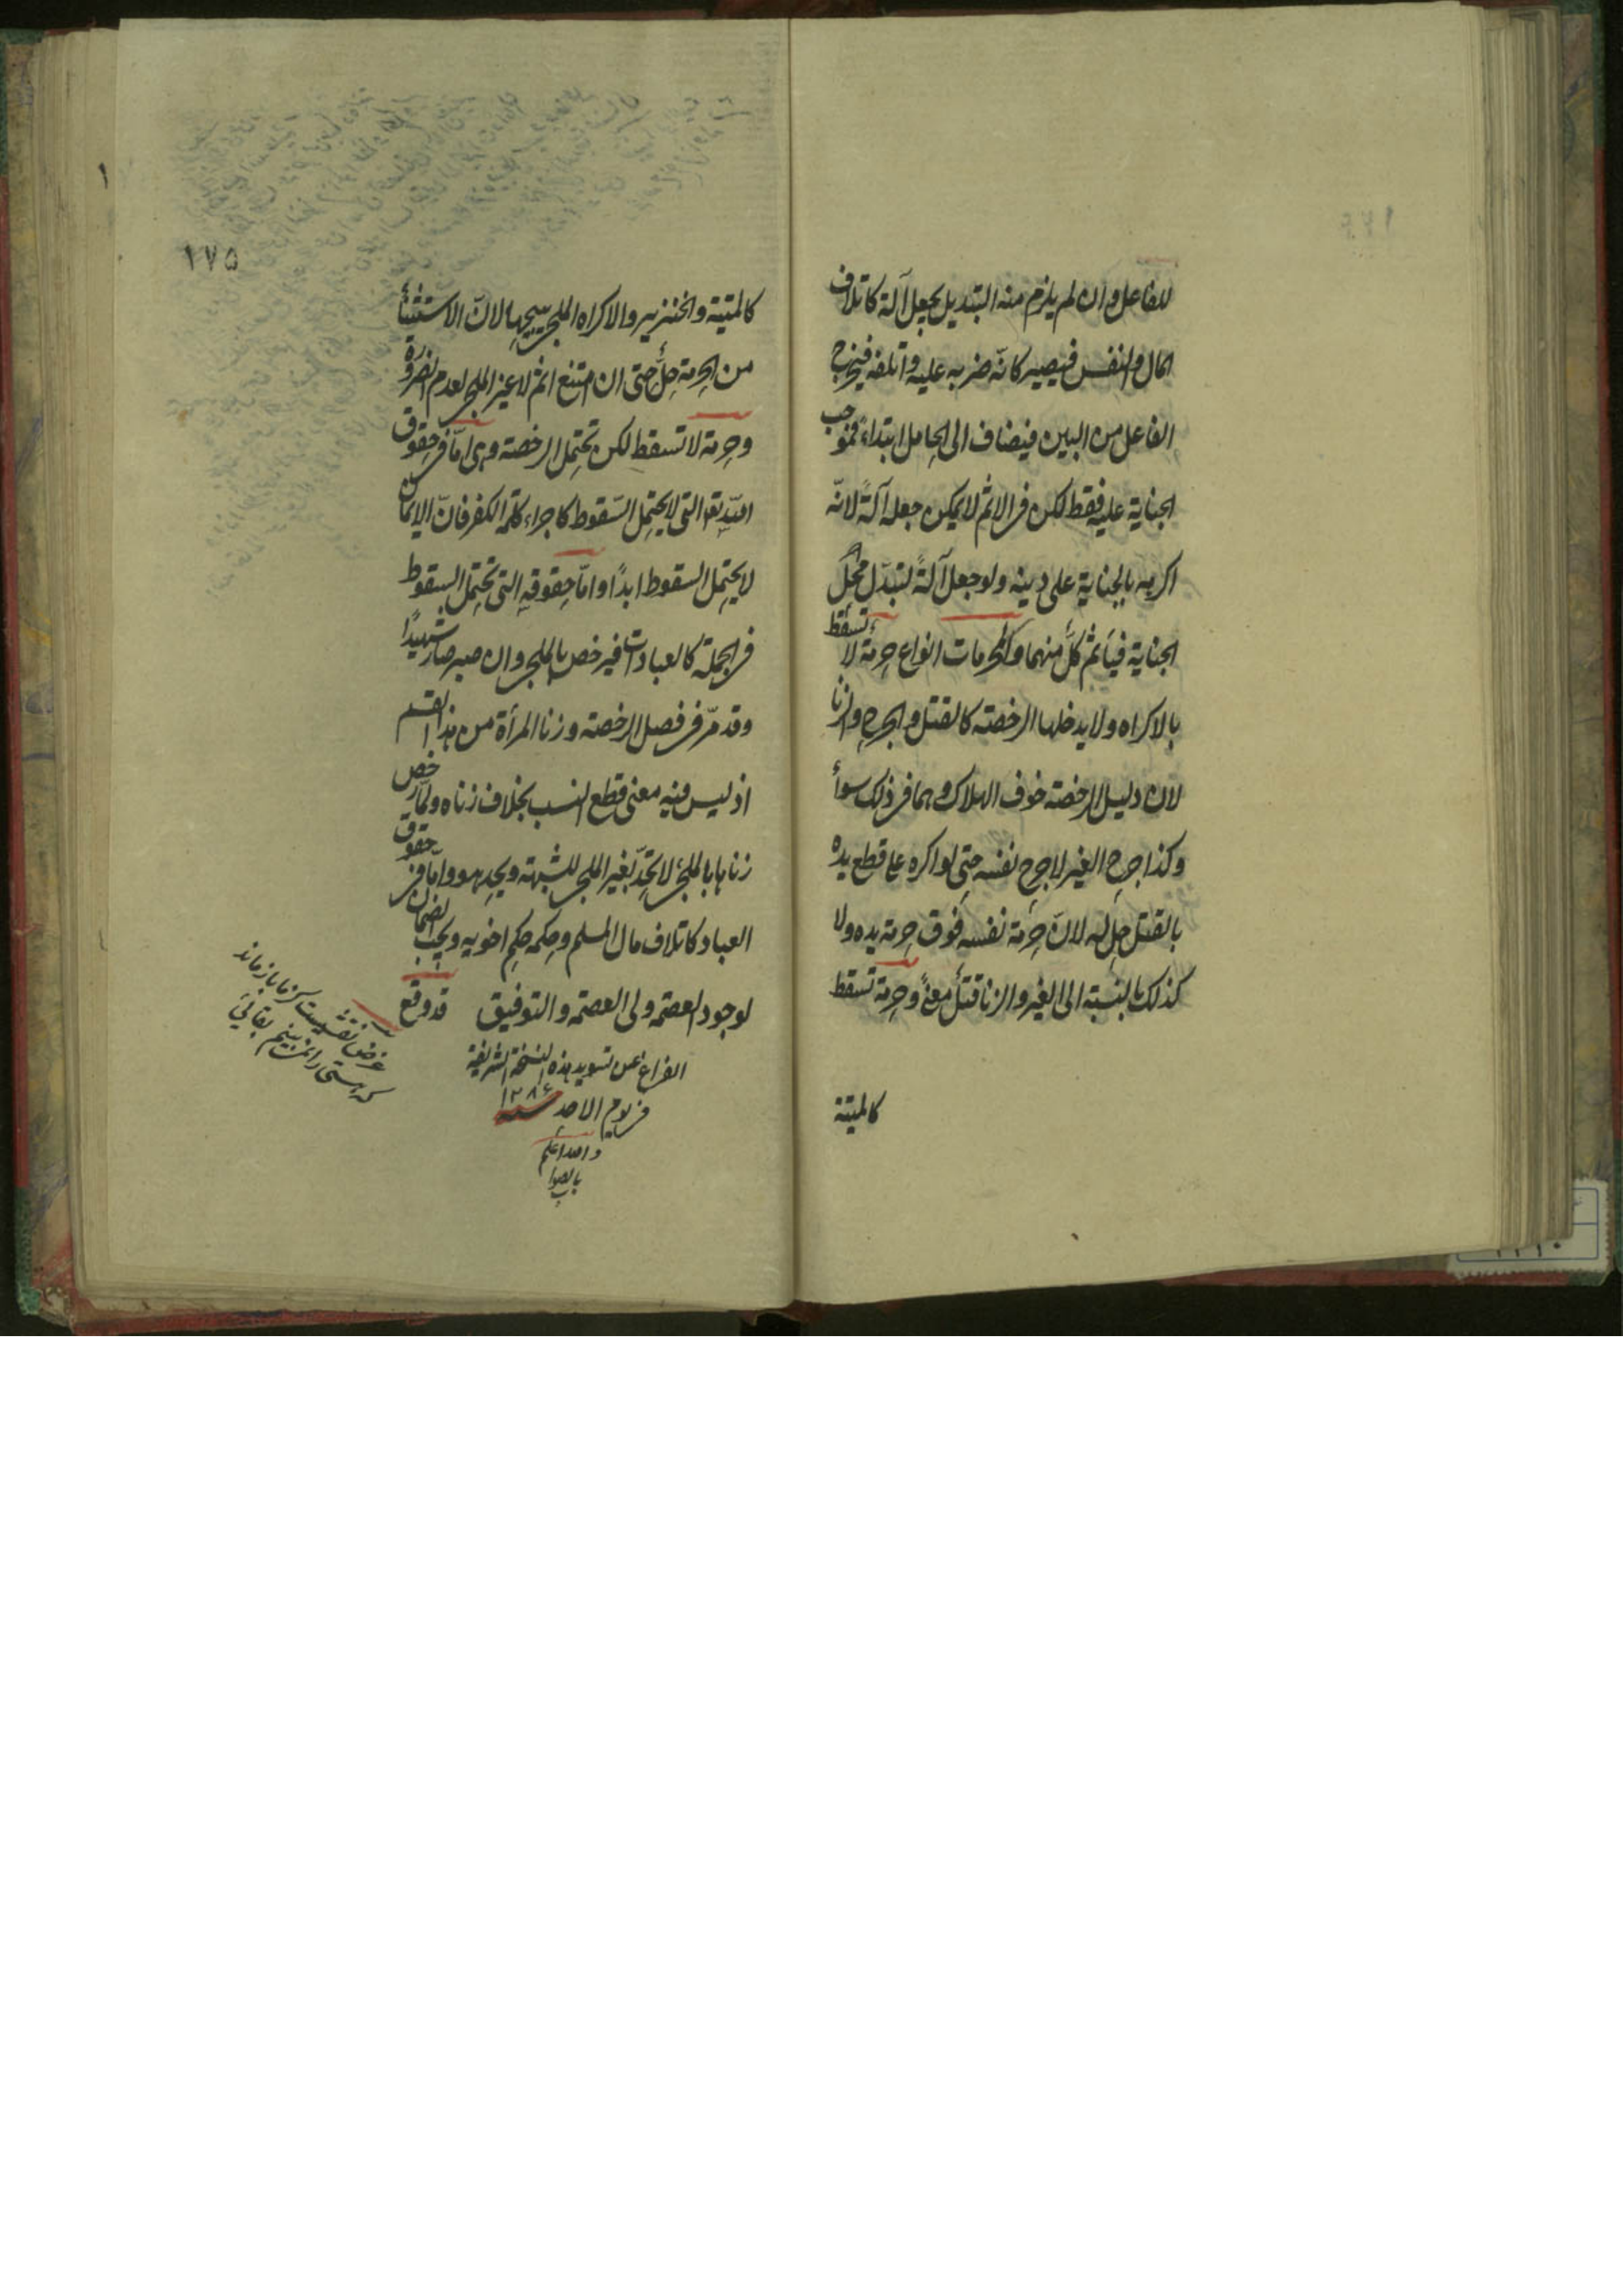 للفاعل وان لم يلزم منه التبديل يجعل آلة كاتلاف
المال والنفس فيصير كانّه ضربه عليه واتلفه فيخرج
الفاعل من البين فيضاف الى الحامل ابتداءً فموجب
الجناية عليه فقط لكن فى الاثم لا يمكن جعله آلةً لانّه
اكره بالجناية على دينه ولو جعل آلةً لتبدّل محلّ
الجناية فيأثم كلٌّ منهما والمحرمات انواع حرمةٌ لا تسقط
بالاكراه ولا يدخلها الرخصة كالقتل والجرح والزنا
لان دليل الرخصة خوف الهلاك وهما فى ذلك سواءٌ
وكذا جرح الغير لا جرح نفسه حتى لو اكره على قطع يده
بالقتل حلّ له لانّ حرمة نفسه فوق حرمة يده ولا
كذلك بالنسبة الى الغير والزنا قتلٌ معنًى وحرمة تسقط
كالميتة
١٧٥
كالميتة والخنزير والاكراه الملجى يبيحها لانّ الاستثناء
من الحرمة حلٌّ حتى ان امتنع اثم لا غير الملجى لعدم الضرورة
وحرمة لا تسقط لكن تحتمل الرخصة وهى امّا فى حقوق
اللّه تعالى التى لا يحتمل السّقوط كاجراء كلمة الكفر فانّ الايمان
لا يحتمل السقوط ابدًا وامّا حقوقه التى تحتمل السقوط
فى الجملة كالعبادات فيرخص بالملجى وان صبر صار شهيدًا
وقد مرّ فى فصل الرخصة وزنا المرأة من هذا القسم
اذ ليس فيه معنى قطع النسب بخلاف زناه ولمّا رخص
زناها بالملجئ لا تحدّ بغير الملجى للشبهة ويحد هو وامّا فى حقوق
العباد كاتلاف مال المسلم وحكمه حكم اخويه ويجب الضمان
لوجود العصمة ولى العصمة والتوفيق قد وقع
الفراغ عن تسويد هذه النسخة الشريفة
فى يوم الاحد سنه ١٢٨٤
واللہ اعلم
بالصواب
غرض نقشيست كز ما باز ماند
كه هستى را نمى بينم بقائى